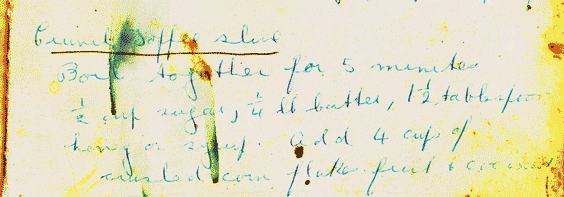 Crunch Toffee slice
Boil together for 5 minutes
½ cup sugar, ¼ lb butter, 1½ tablespoon
honey or syrup. Add 4 cups of
crushed corn flakes fruit & coconut